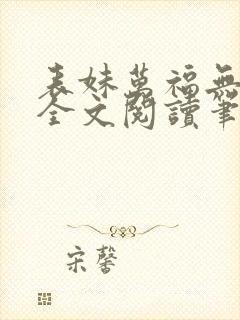 表妹萬福無
全文閱讀筆
宋馨